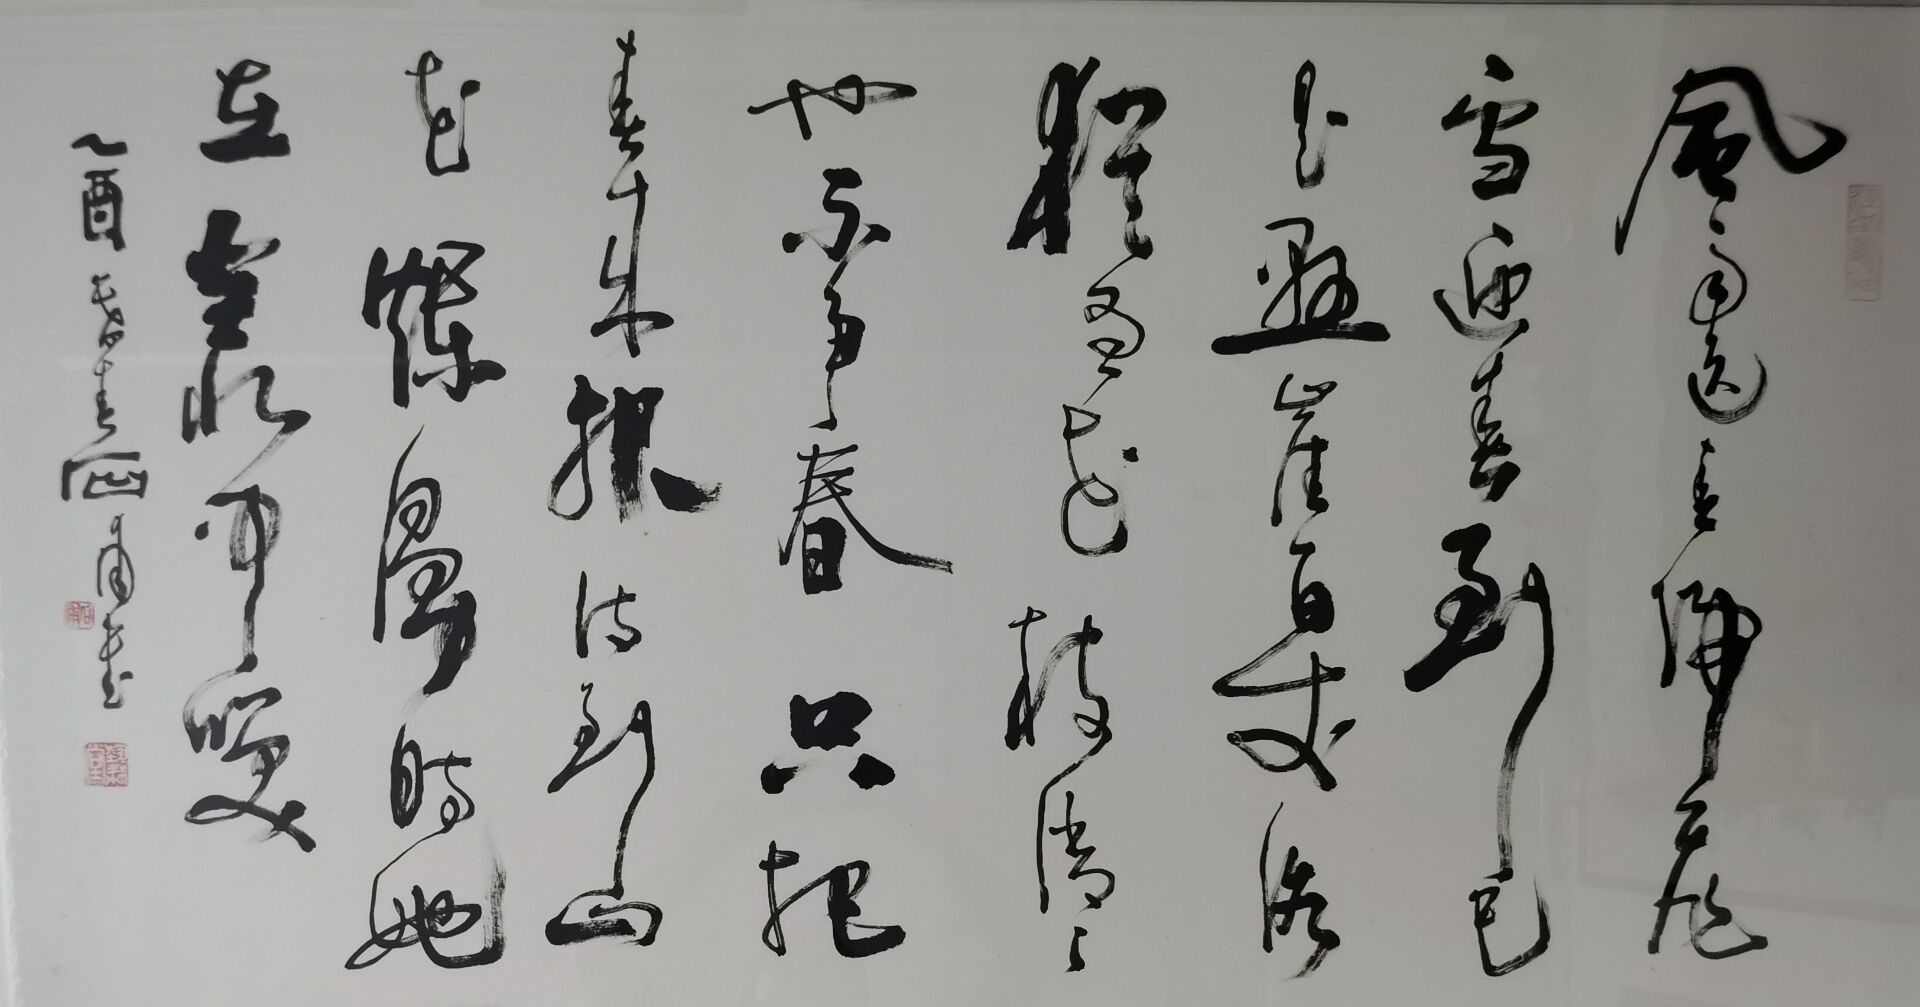 風雨送春歸飛
雪迎春到已
是懸崖百丈冰
猶有花枝俏々
也不争春只把
春来報待到山
花爛漫時她
在叢中笑
乙酉春书